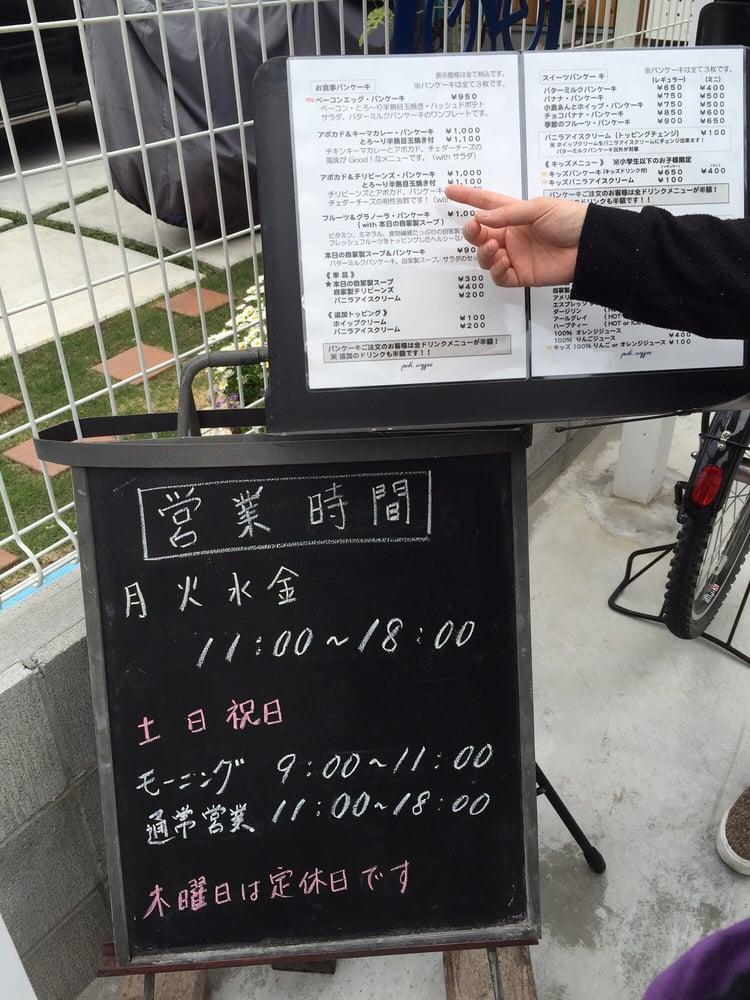 表示価格は全て税込です。
お食事パンケーキ ※パンケーキは全て3枚です。
ベーコンエッグ・パンケーキ ¥950
ベーコン・とろ〜り半熟目玉焼き・ハッシュドポテト
サラダ、バターミルクパンケーキのワンプレートです。
アボカド&キーマカレー・パンケーキ ¥1,000
とろ〜り半熟目玉焼き付 ¥1,100
チキンキーマカレーとアボカド、チェダーチーズの
風味が Good!なメニューです。(with サラダ)
アボカド&チリビーンズ・パンケーキ ¥1,000
とろ〜り半熟目玉焼き付 ¥1,100
チリビーンズとアボカド、パンケーキ
チェダーチーズの相性抜群です!(with
フルーツ&グラノーラ・パンケーキ ¥1,00
(with 本日の自家製スープ)
ビタミン、ミネラル、食物繊維たっぷりの自家製
フレッシュフルーツをトッピングしたヘルシーな
本日の自家製スープ&パンケーキ ¥90
バターミルクパンケーキ、自家製スープ、サラダのセ
《単品》
★本日の自家製スープ ¥300
自家製チリビーンズ ¥400
バニラアイスクリーム ¥200
《追加トッピング》
ホイップクリーム ¥100
バニラアイスクリーム ¥200
パンケーキご注文のお客様は全ドリンクメニューが半額!
※追加のドリンクも半額です!!
puk. coffee
※パンケーキは全て3枚です。
スイーツパンケーキ (レギュラー) (ミニ)
バターミルクパンケーキ ¥650 ¥400
バナナ・パンケーキ ¥750 ¥500
小倉あんとホイップ・パンケーキ ¥750 ¥500
チョコバナナ・パンケーキ ¥850 ¥600
季節のフルーツ・パンケーキ ¥900 ¥650
バニラアイスクリーム(トッピングチェンジ) ¥100
※ホイップクリームをバニラアイスクリームにチェンジ出来ます!
バターミルクパンケーキ以外が対象
《キッズメニュー》※小学生以下のお子様限定
キッズパンケーキ(キッズドリンク付) ¥650 ¥400
キッズバニラアイスクリーム ¥100
パンケーキご注文のお客様は全ドリンクメニューが半額!
※追加のドリンクも半額です!!
アメリ
エスプレッソ
ダージリン (HOT
アールグレイ (HOT
ハーブティー (HOT or
100% オレンジジュース
100% りんごジュース ¥400
キッズ 100% りんご or オレンジジュース ¥100
puk. coffee
営業時間
月火水金
11:00〜18:00
土日祝日
モーニング 9:00〜11:00
通常営業 11:00〜18:00
木曜日は定休日です